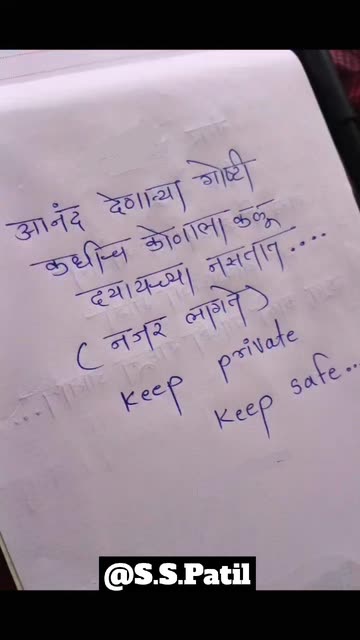 आनंद देणाऱ्या गोष्टी
कधीच कोणाला कळू
दयायच्या नसतात....
( नजर लागते )
keep private
keep safe...
@S.S.Patil